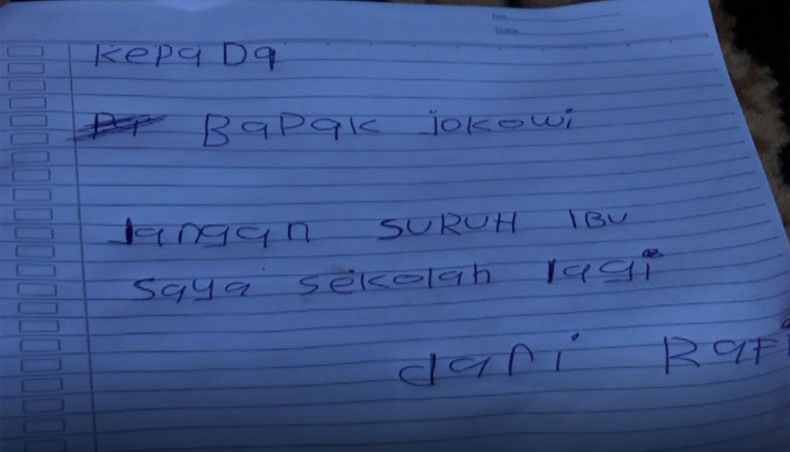 No.
Date
kepada
BaPak jokowi
Jangan SURUH IBU
saya sekolah lagi
dari Rafi